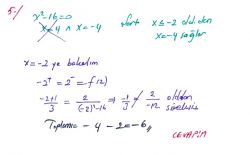 5./ x²-16=0
x=4 ∧ x=-4 şart x≤-2 olduğundan
x=-4 sağlar
x=-2 ye bakalım
-2⁺ = 2⁻ = f(2)
-2+1/3 = 2/(-2)²-16 ⇒ -1/3 ≠ 2/-12 olduğundan
süreksiz
Toplamı = -4 -2 = -6//
CEVAP: